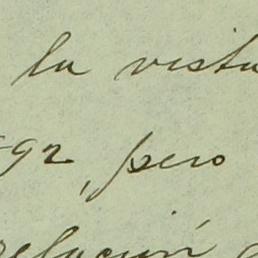 la vista
92, pero
relación